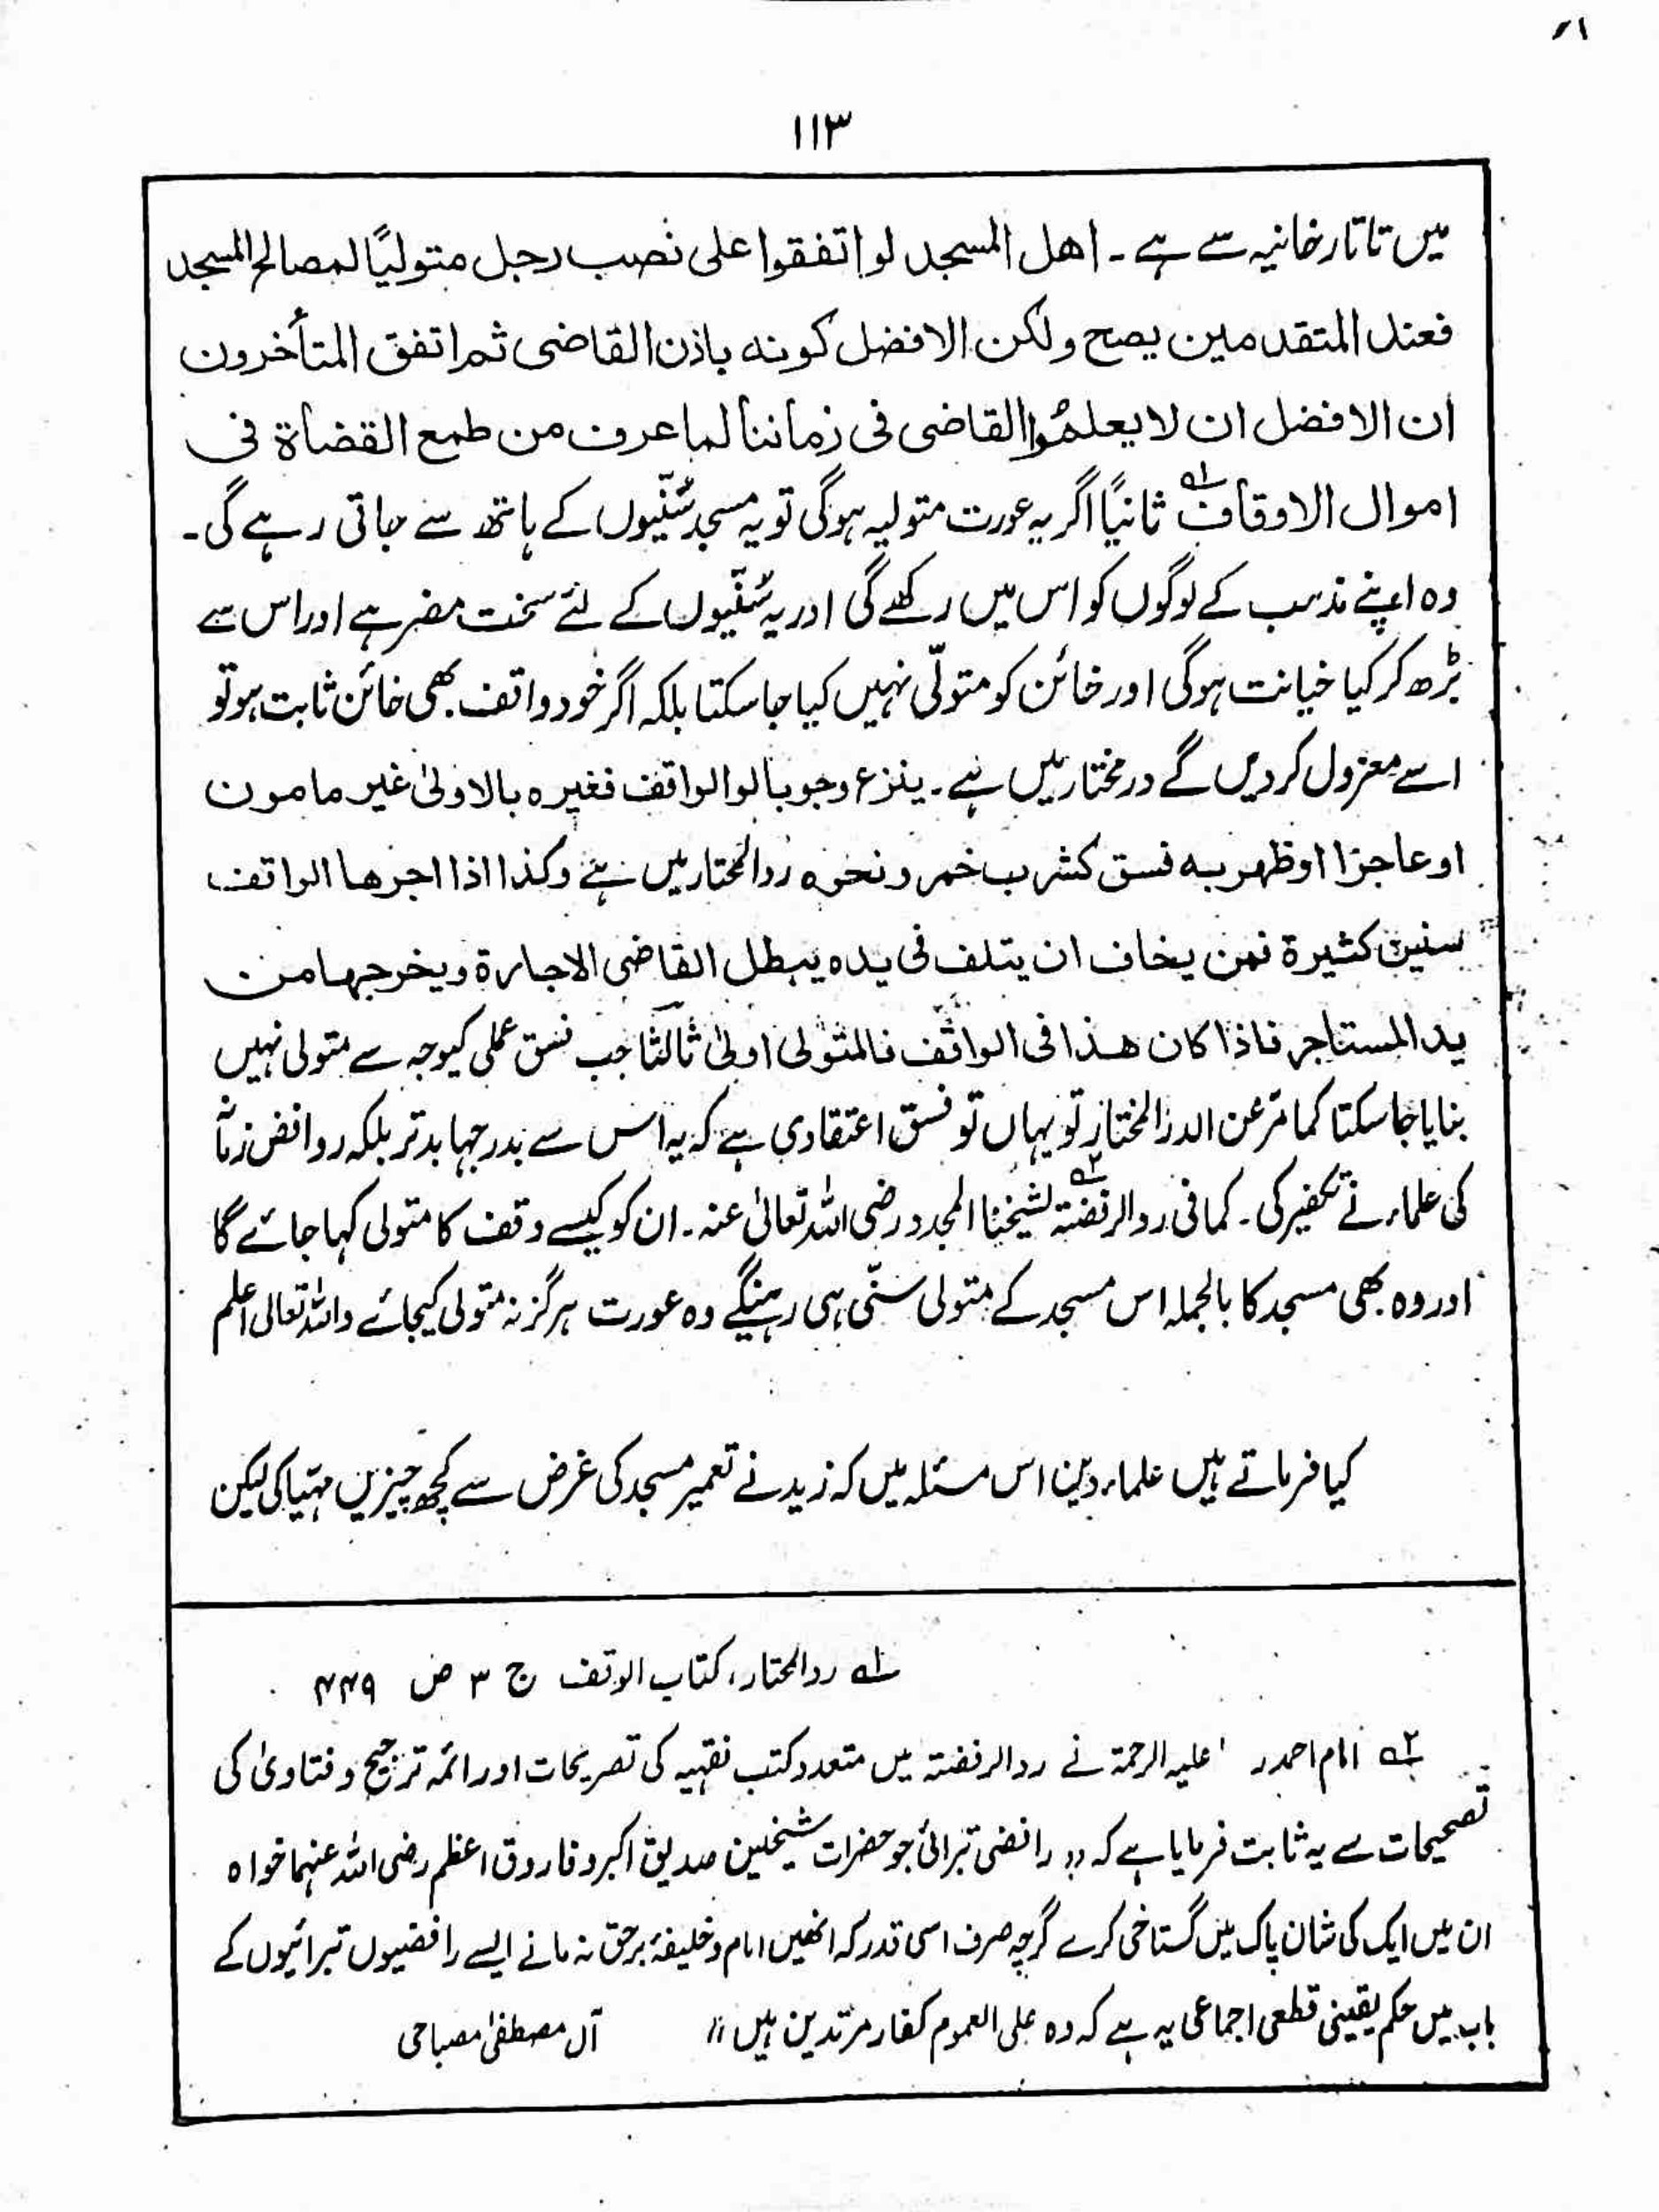 ۱۱۳
میں تاتارخانیہ سے ہے ۔ اهل المسجد لو اتفقوا علی نصب رجل متولیًا لمصالح المسجد
فعند المتقدمین یصح ولکن الافضل کونہ باذن القاضی ثم اتفق المتأخرون
ان الافضل ان لا یعلمُوا القاضی فی زماننا لما عرف من طمع القضاۃ فی
اموال الاوقاف ؎۱ ثانیًا اگر یہ عورت متولیہ ہوگی تو یہ مسجد سُنّیوں کے ہاتھ سے جاتی رہے گی ۔
وہ اپنے مذہب کے لوگوں کو اس میں رکھے گی اور یہ سُنّیوں کے لئے سخت مضر ہے اور اس سے
بڑھ کر کیا خیانت ہوگی اور خائن کو متولّی نہیں کیا جاسکتا بلکہ اگر خود واقف بھی خائن ثابت ہو تو
اسے معزول کردیں گے درمختار میں ہے ۔ ینزع وجوبا لو الواقف فغیرہ بالاولیٰ غیر مامون
او عاجزا او ظهر بہ فسق کشرب خمر و نحوہ ردالمحتار میں ہے وکذا اذا اجرها الواقف
سنین کثیرۃ ممن یخاف ان یتلف فی یدہ یبطل القاضی الاجارۃ ویخرجها من
ید المستاجر فاذا کان هذا فی الواقف فالمتولی اولیٰ ثالثا جب فسق عملی کیوجہ سے متولی نہیں
بنایا جاسکتا کما مرّ عن الدر المختار تو یہاں تو فسق اعتقادی ہے کہ یہ اس سے بدرجہا بدتر بلکہ روافض زمانہ
کی علماء نے تکفیر کی ۔ کما فی رد الرفضۃ ؎۲ لشیخنا المجدد رضی اللہ تعالیٰ عنہ ۔ ان کو کیسے وقف کا متولی کہا جائے گا
اور وہ بھی مسجد کا بالجملہ اس مسجد کے متولی سنّی ہی رہینگے وہ عورت ہرگز نہ متولی کیجائے واللہ تعالیٰ اعلم
کیا فرماتے ہیں علماء دین اس مسئلہ میں کہ زید نے تعمیر مسجد کی غرض سے کچھ چیزیں مہیّا کی لیکن
؎۱ ردالمحتار، کتاب الوقف ج ۳ ص ۴۴۹
؎۲ امام احمد ر علیہ الرحمۃ نے رد الرفضۃ میں متعدد کتب فقہیہ کی تصریحات اور ائمہ ترجیح و فتاویٰ کی
تصحیحات سے یہ ثابت فرمایا ہے کہ ,, رافضی تبرائی جو حضرات شیخین صدیق اکبر و فاروق اعظم رضی اللہ عنہما خواہ
ان میں ایک کی شان پاک میں گستاخی کرے گرچہ صرف اسی قدر کہ انھیں امام و خلیفۂ برحق نہ مانے ایسے رافضیوں تبرائیوں کے
باب میں حکم یقینی قطعی اجماعی یہ ہے کہ وہ علی العموم کفار مرتدین ہیں ،، آل مصطفیٰ مصباحی